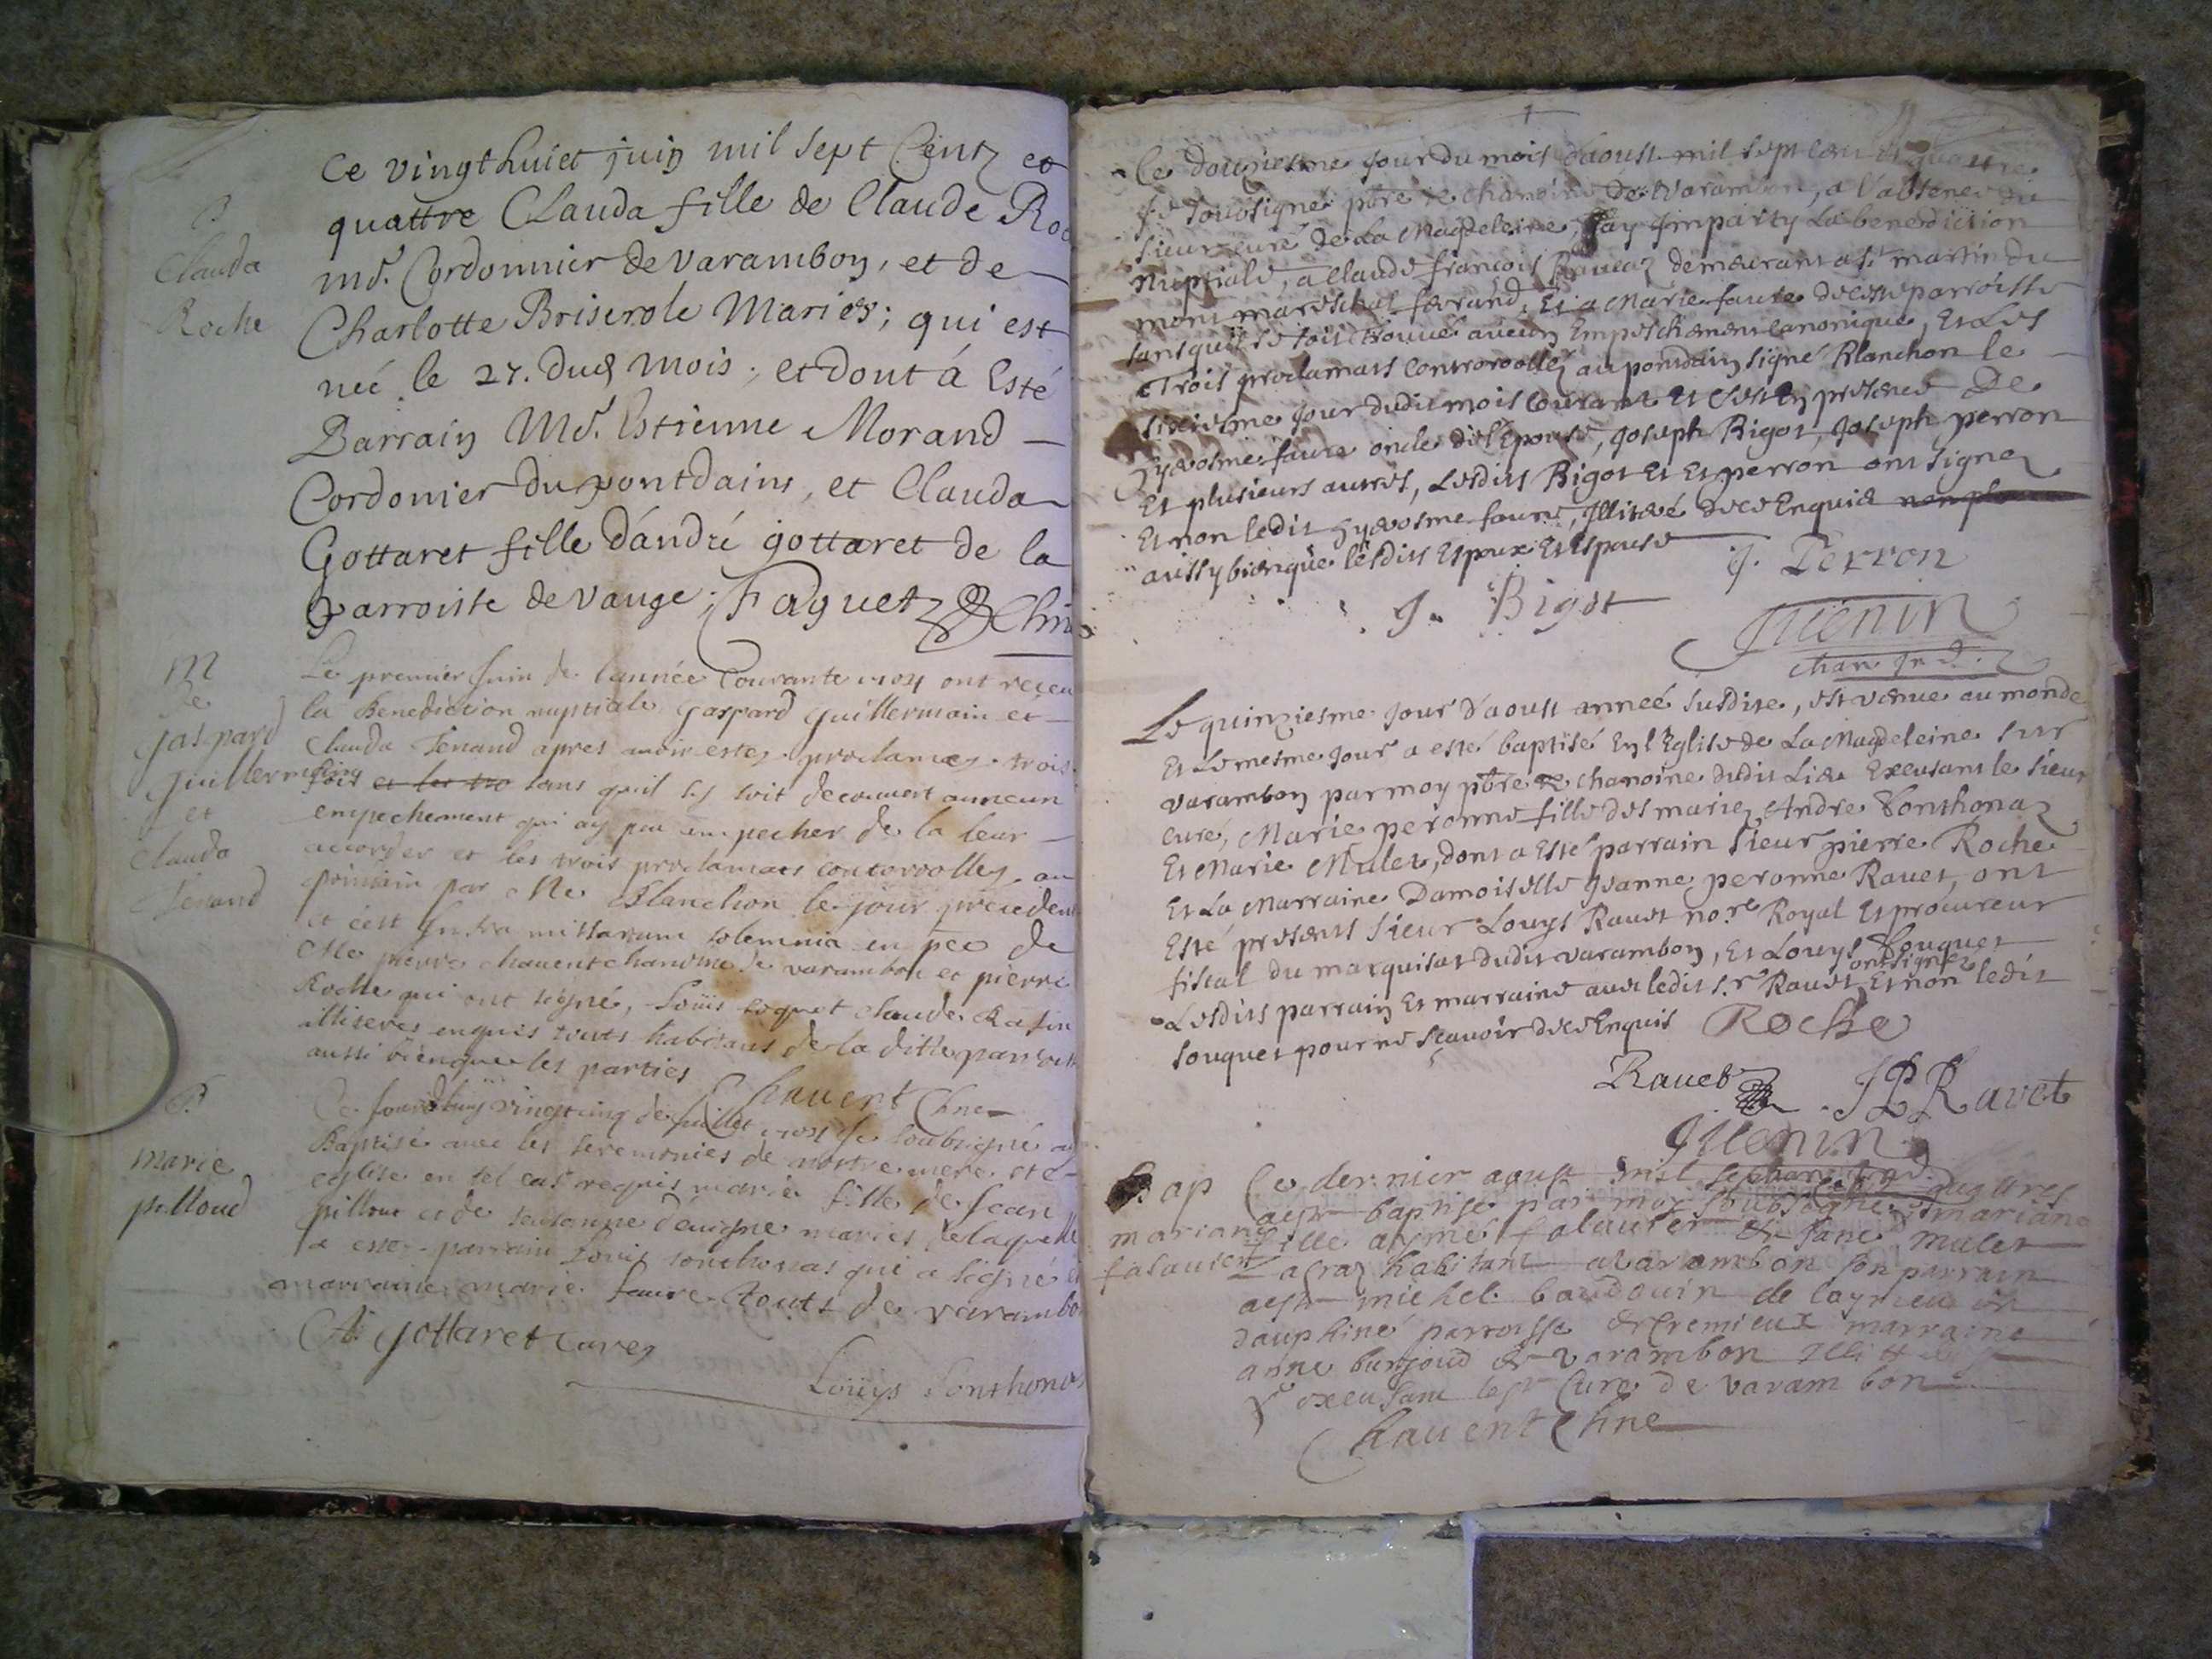 Ce vingthuict juin mil sept Centz et
quattre Clauda fille de Claude
md. Cordonnier de varambon, et de
Charlotte Briserole Mariés; qui est
neé le 27. dud mois; et dont á Esté
Parrain Md. Estienne Morand
Cordonier du pontdains, et Clauda
Gottaret fille d'andré gottaret de la
parroisse de vange; Faguet
B
Clauda
Roche
Le premier Juin de l'année Courante 1704 ont reçeu
la Benediction nuptiale gaspard guillermain et
Clauda Tenand apres avoir estez proclamez trois
fois et les tro sans quil sy soit decouvert auncun
empechement qui ay pu empecher de la leur
accorder et les trois proclamats controrollez au
pontdain par Me Blanchon le jour precedent
et c'est Intra missarum solemnia en pce de
Me pierre chauent chanoine de varambon et pierre
Roche qui ont signé, Loüis soquet claude Rasin
illiteres enquis touts habitans de la ditte parroisse
aussi bienque les parties
Chauent Chne
M
de
gaspard
guillermain
et
Clauda
Tenand
Ce Jourdhuy vingtcinq de Juillet 1704 Je soubsigné ay
Baptisé avec les seremonies de nostre mere Ste
eglise en tel cas requis marie fille de Jean
pilloud et de maries delaquelle
a estez parrain Louis sonthonas qui a signé et
marraine marie faure touts de varambon
A Gottaret curez
Louys Sonthonas
B
marie
pilloud
Ce douziesme jour du mois d'aoust mil sept cent et quattre
Je sousigné pbre & chanoine de Varambon, a l'absence du
sieur curé de La Magdeleine, Jay Imparty La benediction
nuptiale, a claude françois demeurant a st martin du
mont mareschal ferrand, Et a Marie faure de cette parroisse
sans quil se soit trouvé aucun Empeschement canonique, Et Les
Trois proclamats controrollez au pontdain signé Blanchon le
sixiesme jour dudit mois courant Et c'est En presence de
hyerosme faure oncle de l'Epouse, Joseph Bigot, Joseph perron
Et plusieurs autres, Lesdits Bigot Et Et perron ont signez
Et non ledit hyerosme faure, Illiteré de ce Enquis
aussy bienque lesdits Espoux Et Espouse
J. Perron
J. Bigot
Juenin
chan. Ind.
Le quinziesme jour d'aoust anneé susdite, est venue au monde
Et Le mesme jour a esté baptisé En l'Eglise de La Magdeleine sur
varambon par moy pbre & chanoine dudit Lieu Excusant le sieur
curé, Marie peronne fille des mariez Andre Sonthonaz
Et Marie Mulet, dont a Esté parrain sieur pierre Roche
Et La Marraine Damoiselle Jeanne peronne Ravet, ont
Esté presents sieur Louys Ravet no.re Royal Et procureur
fiscal du marquisat dudit varambon, Et Louys Souquet
Lesdits parrain Et marraine avec ledit s.r Ravet ont signez Et non ledit
souquet pour ne sçavoir de ce Enquis
Roche
Ravet
JPRavet
Juenin
chan. Ind.
Bap
mariane
falauier
Ce dernier aoust mil sept cent quattres
aesté baptisé par moy soubsigné mariane
fille aymé falauier & Jane mulet
habitant avarambon son parrain
aesté michel baudouin de
dauphiné parroisse de Cremieux marraine
anne burjoud de varambon
excusant le sr Curé de varambon
Chauent Chne